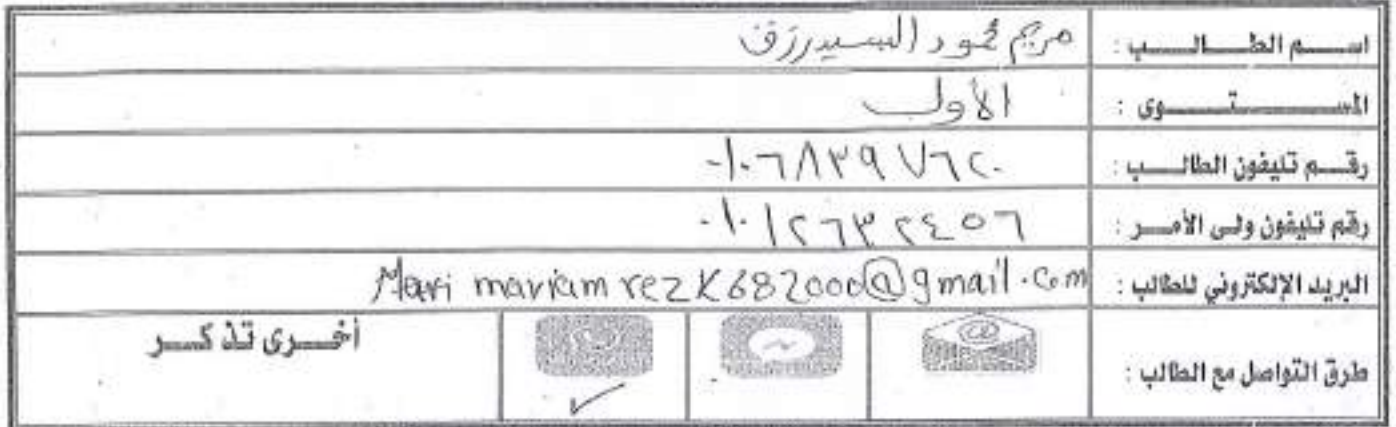 اسم الطالب : مريم محمود السيد رزق
المستوى : الأول
رقم تليفون الطالب : ٠١٠٦٨٣٩٧٦٢٠
رقم تليفون ولى الأمر : ٠١٠١٢٦٣٢٤٥٦
البريد الإلكتروني للطالب : mariamrezk682000@gmail.com
طرق التواصل مع الطالب : أخرى تذكر